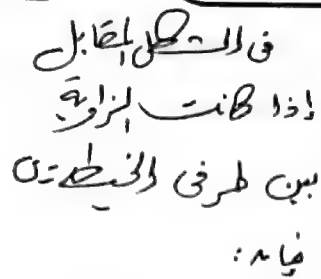 فى الشكل المقابل
إذا كانت الزاوية
بين طرفى الخيطين
فإن: